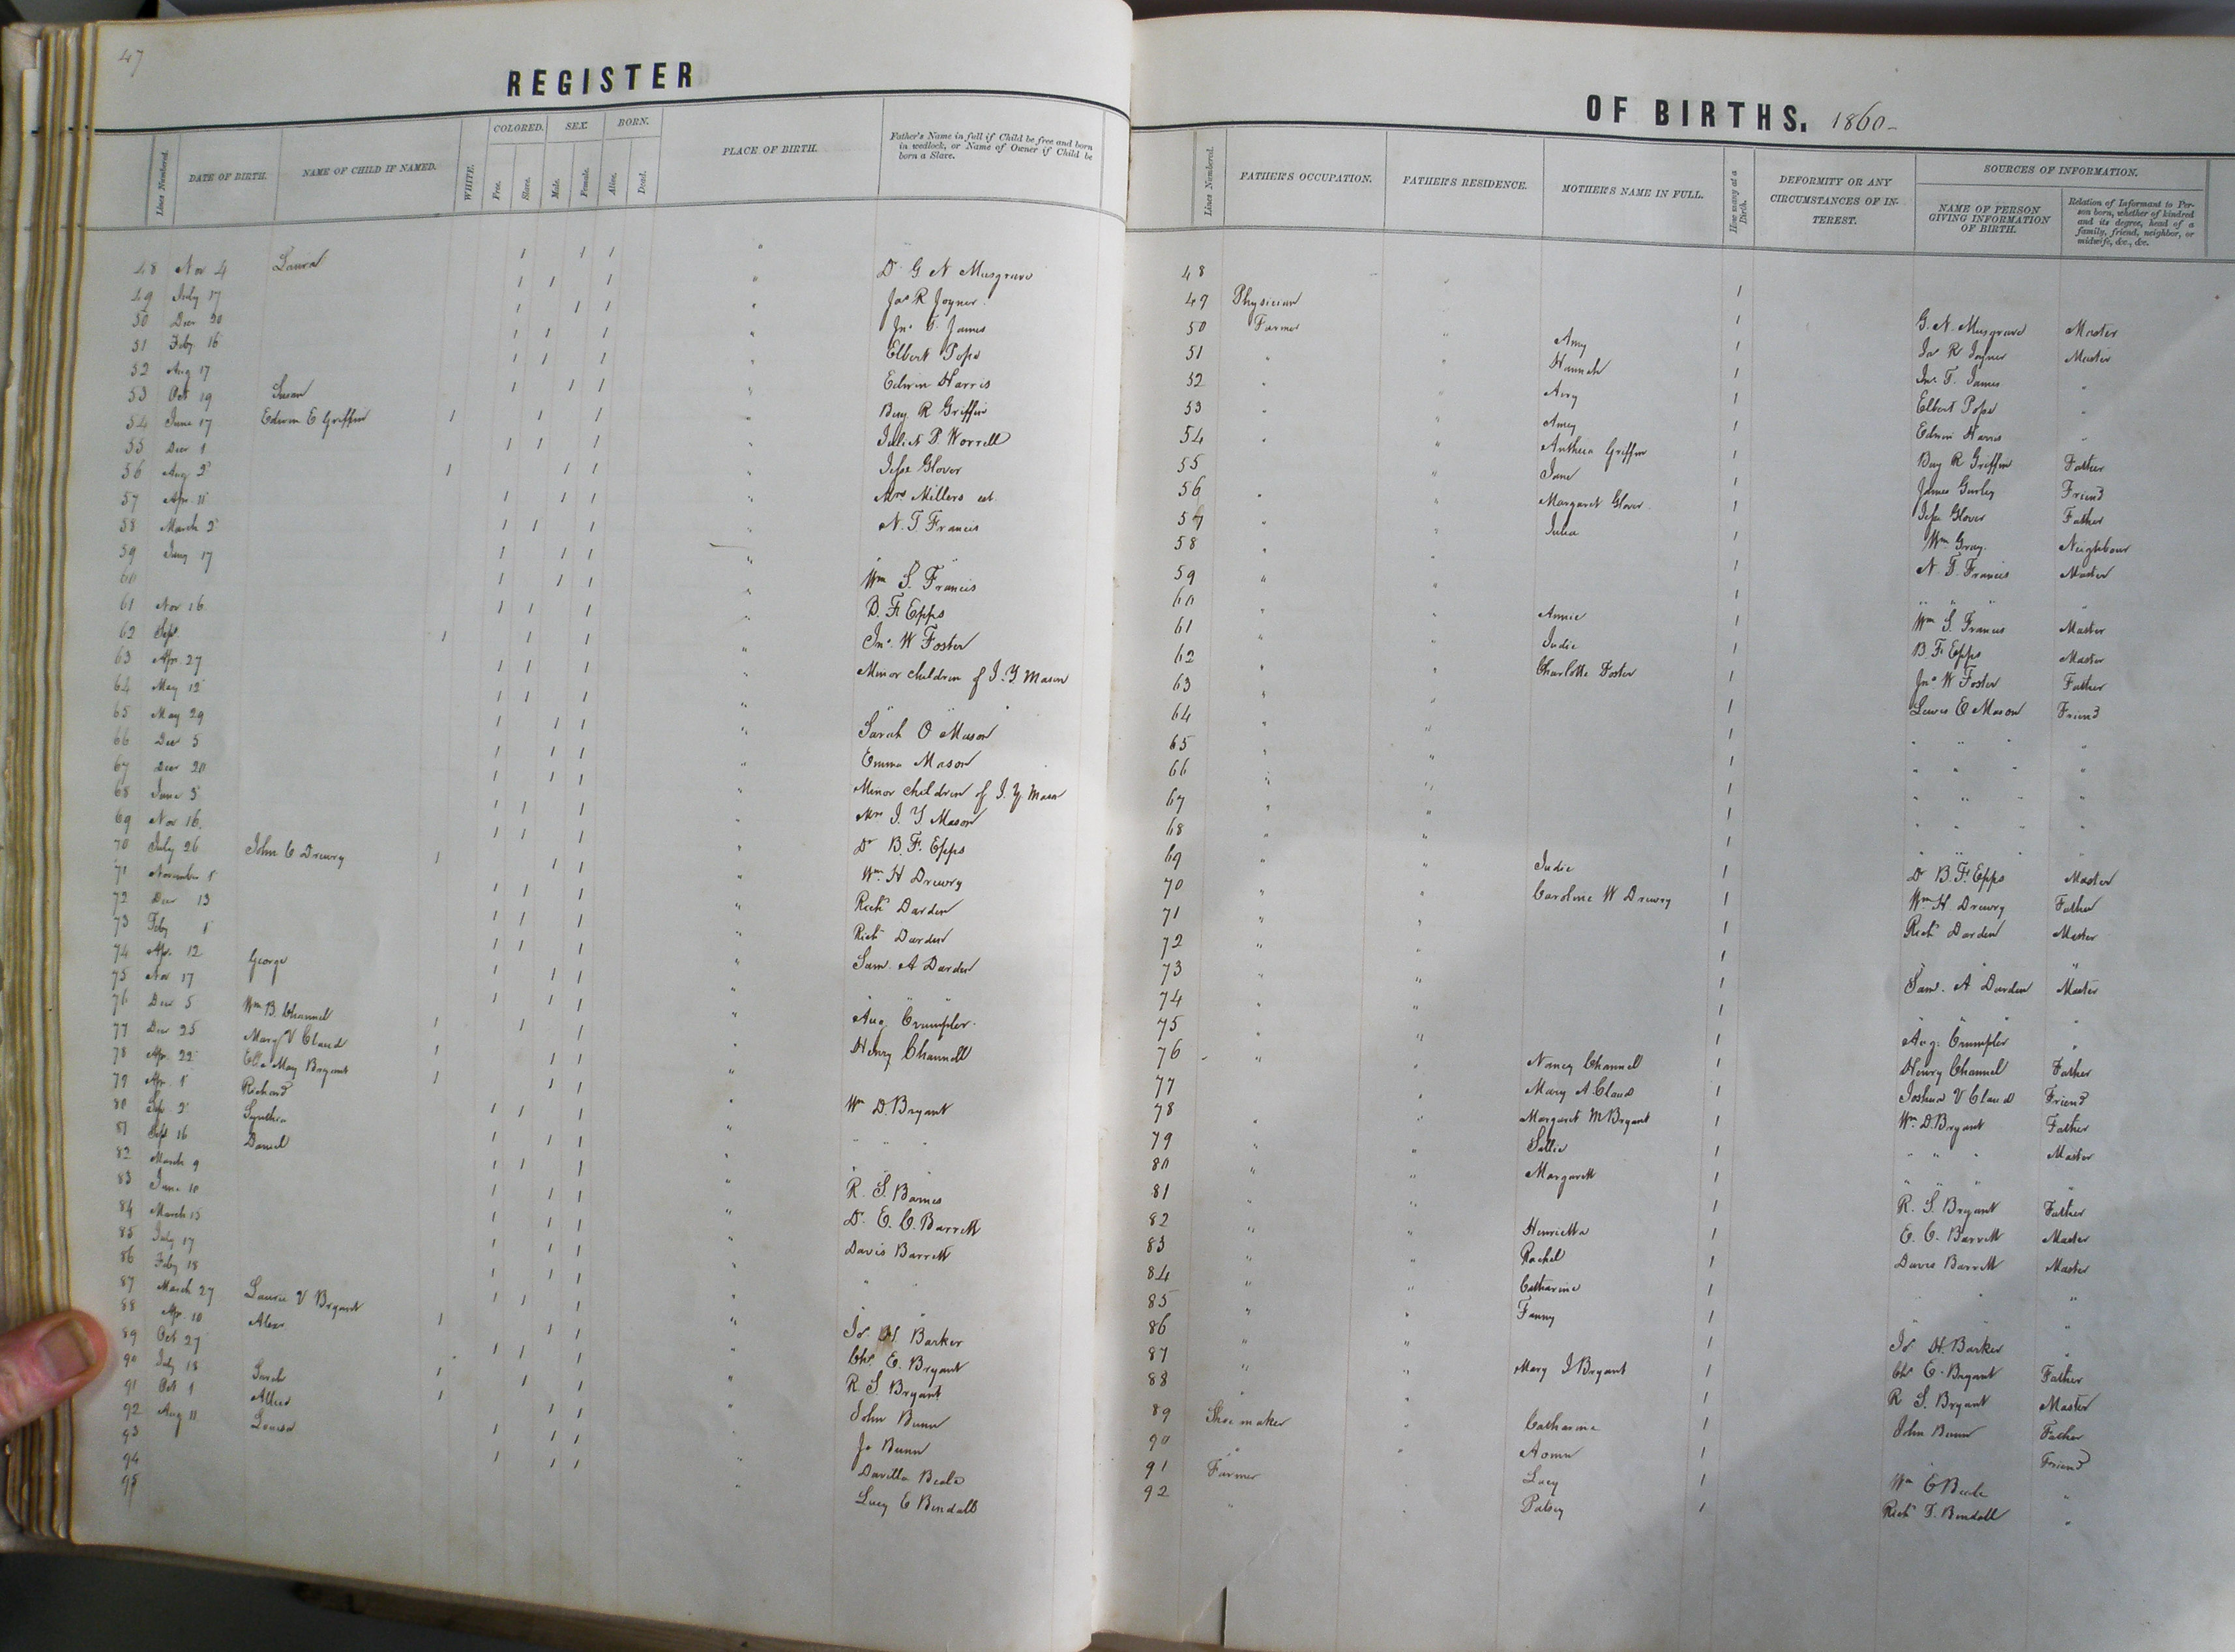 47
REGISTER
Lines Numbered. DATE OF BIRTH. NAME OF CHILD IF NAMED. WHITE. COLORED. Free. Slave. SEX. Male. Female. BORN. Alive. Dead. PLACE OF BIRTH. Father's Name in full if Child be free and born in wedlock, or Name of Owner if Child be born a Slave.
48 Nov 4 Laura Dr G N Musgrave
49 July 17 Jas R Joyner
50 Dec 20 Jno T. James
51 Feby 16 Elbert Pope
52 Aug 17 Edwin Harris
53 Oct 19 Susan Benj R Griffin
54 June 17 Edwin E Griffin P. Worrell
55 Dec 1 Jesse Glover
56 Aug 2 Mrs Millers est
57 Apr. 11 N. T. Francis
58 March 2
59 17 Wm S. Francis
60 B. F. Epps
61 Nov 16 Jno W Foster
62 Sept. Minor children of J. Y Mason
63 Apr. 27
64 May 12 Sarah O Mason
65 May 29 Emma Mason
66 Dec 5 Minor children of J. Y Mason
67 Dec 20 Mrs J. Y Mason
68 June 3 Dr B. F. Epps
69 Nov 16. Wm H Drewry
70 July 26 John C Drewry Richd Darden
71 November 1 Richd Darden
72 Dec 13 Saml. A Darden
73 Feby 1
74 Apr. 12 George Aug Crumpler
75 Nov 17 Henry Channell
76 Dec 5 Wm B. Channel
77 Dec 25 Mary V Claud Wm D. Bryant
78 Apr. 22 Ella May Bryant " " "
79 Apr. 1 Richard
80 Sep. 2 Synthia R. S. Barnes
81 Sept 16 Daniel Dr. E. C. Barrett
82 March 9 Davis Barrett
83 June 10 " "
84 March 15
85 July 17 H. Barker
86 Feby 18 Chs E. Bryant
87 March 27 Laura V Bryant R S. Bryant
88 Apr. 10 Alex John Bunn
89 Oct 27 Bunn
90 July 18 Sarah Davilla Beale
91 Oct 1 Alfred Lucy E Bendall
92 Aug 11 Louisa
93
94
95
OF BIRTHS. 1860-
Lines Numbered. FATHER'S OCCUPATION. FATHER'S RESIDENCE. MOTHER'S NAME IN FULL. How many at a Birth. DEFORMITY OR ANY CIRCUMSTANCES OF INTEREST. SOURCES OF INFORMATION. NAME OF PERSON GIVING INFORMATION OF BIRTH. Relation of Informant to Person born, whether of kindred and its degree, head of a family, friend, neighbor, or midwife, &c., &c.
48
49 Physician G. N. Musgrave Master
50 Farmer Amy Jas R Joyner Master
51 Hannah Jno. T. James "
52 Amy Elbert Pope "
53 Amey Edwin Harris "
54 Griffin Benj R Griffin Father
55 Jane James Gurley Friend
56 Margaret Glover Jesse Glover Father
57 Julia Wm Gray. Neighbour
58 N. T. Francis Master
59 " " " "
60 Annie Wm S. Francis Master
61 Judie B. F. Epps Master
62 Charlotte Foster Jno W Foster Father
63 Lewis E Mason Friend
64 " " " "
65 " " " "
66 " " " "
67 " " " "
68 " " " "
69 Judie Dr B. F. Epps Master
70 Caroline W Drewry Wm H Drewry Father
71 Richd Darden Master
72
73 Saml. A Darden Master
74
75 Aug. Crumpler "
76 Nancy Channel Henry Channel Father
77 Mary A. Claud Joshua V Claud Friend
78 Margaret M Bryant Wm. D. Bryant Father
79 Sallie " " " Master
80 Margarett " " " "
81 R. S. Bryant Father
82 Henrietta E. C. Barrett Master
83 Rachel Davis Barrett Master
84 Catharine " " "
85 Fanny "
86 H. Barker "
87 Mary J Bryant Chs E. Bryant Father
88 R S. Bryant Master
89 Shoemaker Catharine John Bunn Father
90 " Friend
91 Farmer Lucy Wm E Beale "
92 " Patsey Richd T. Bendall "